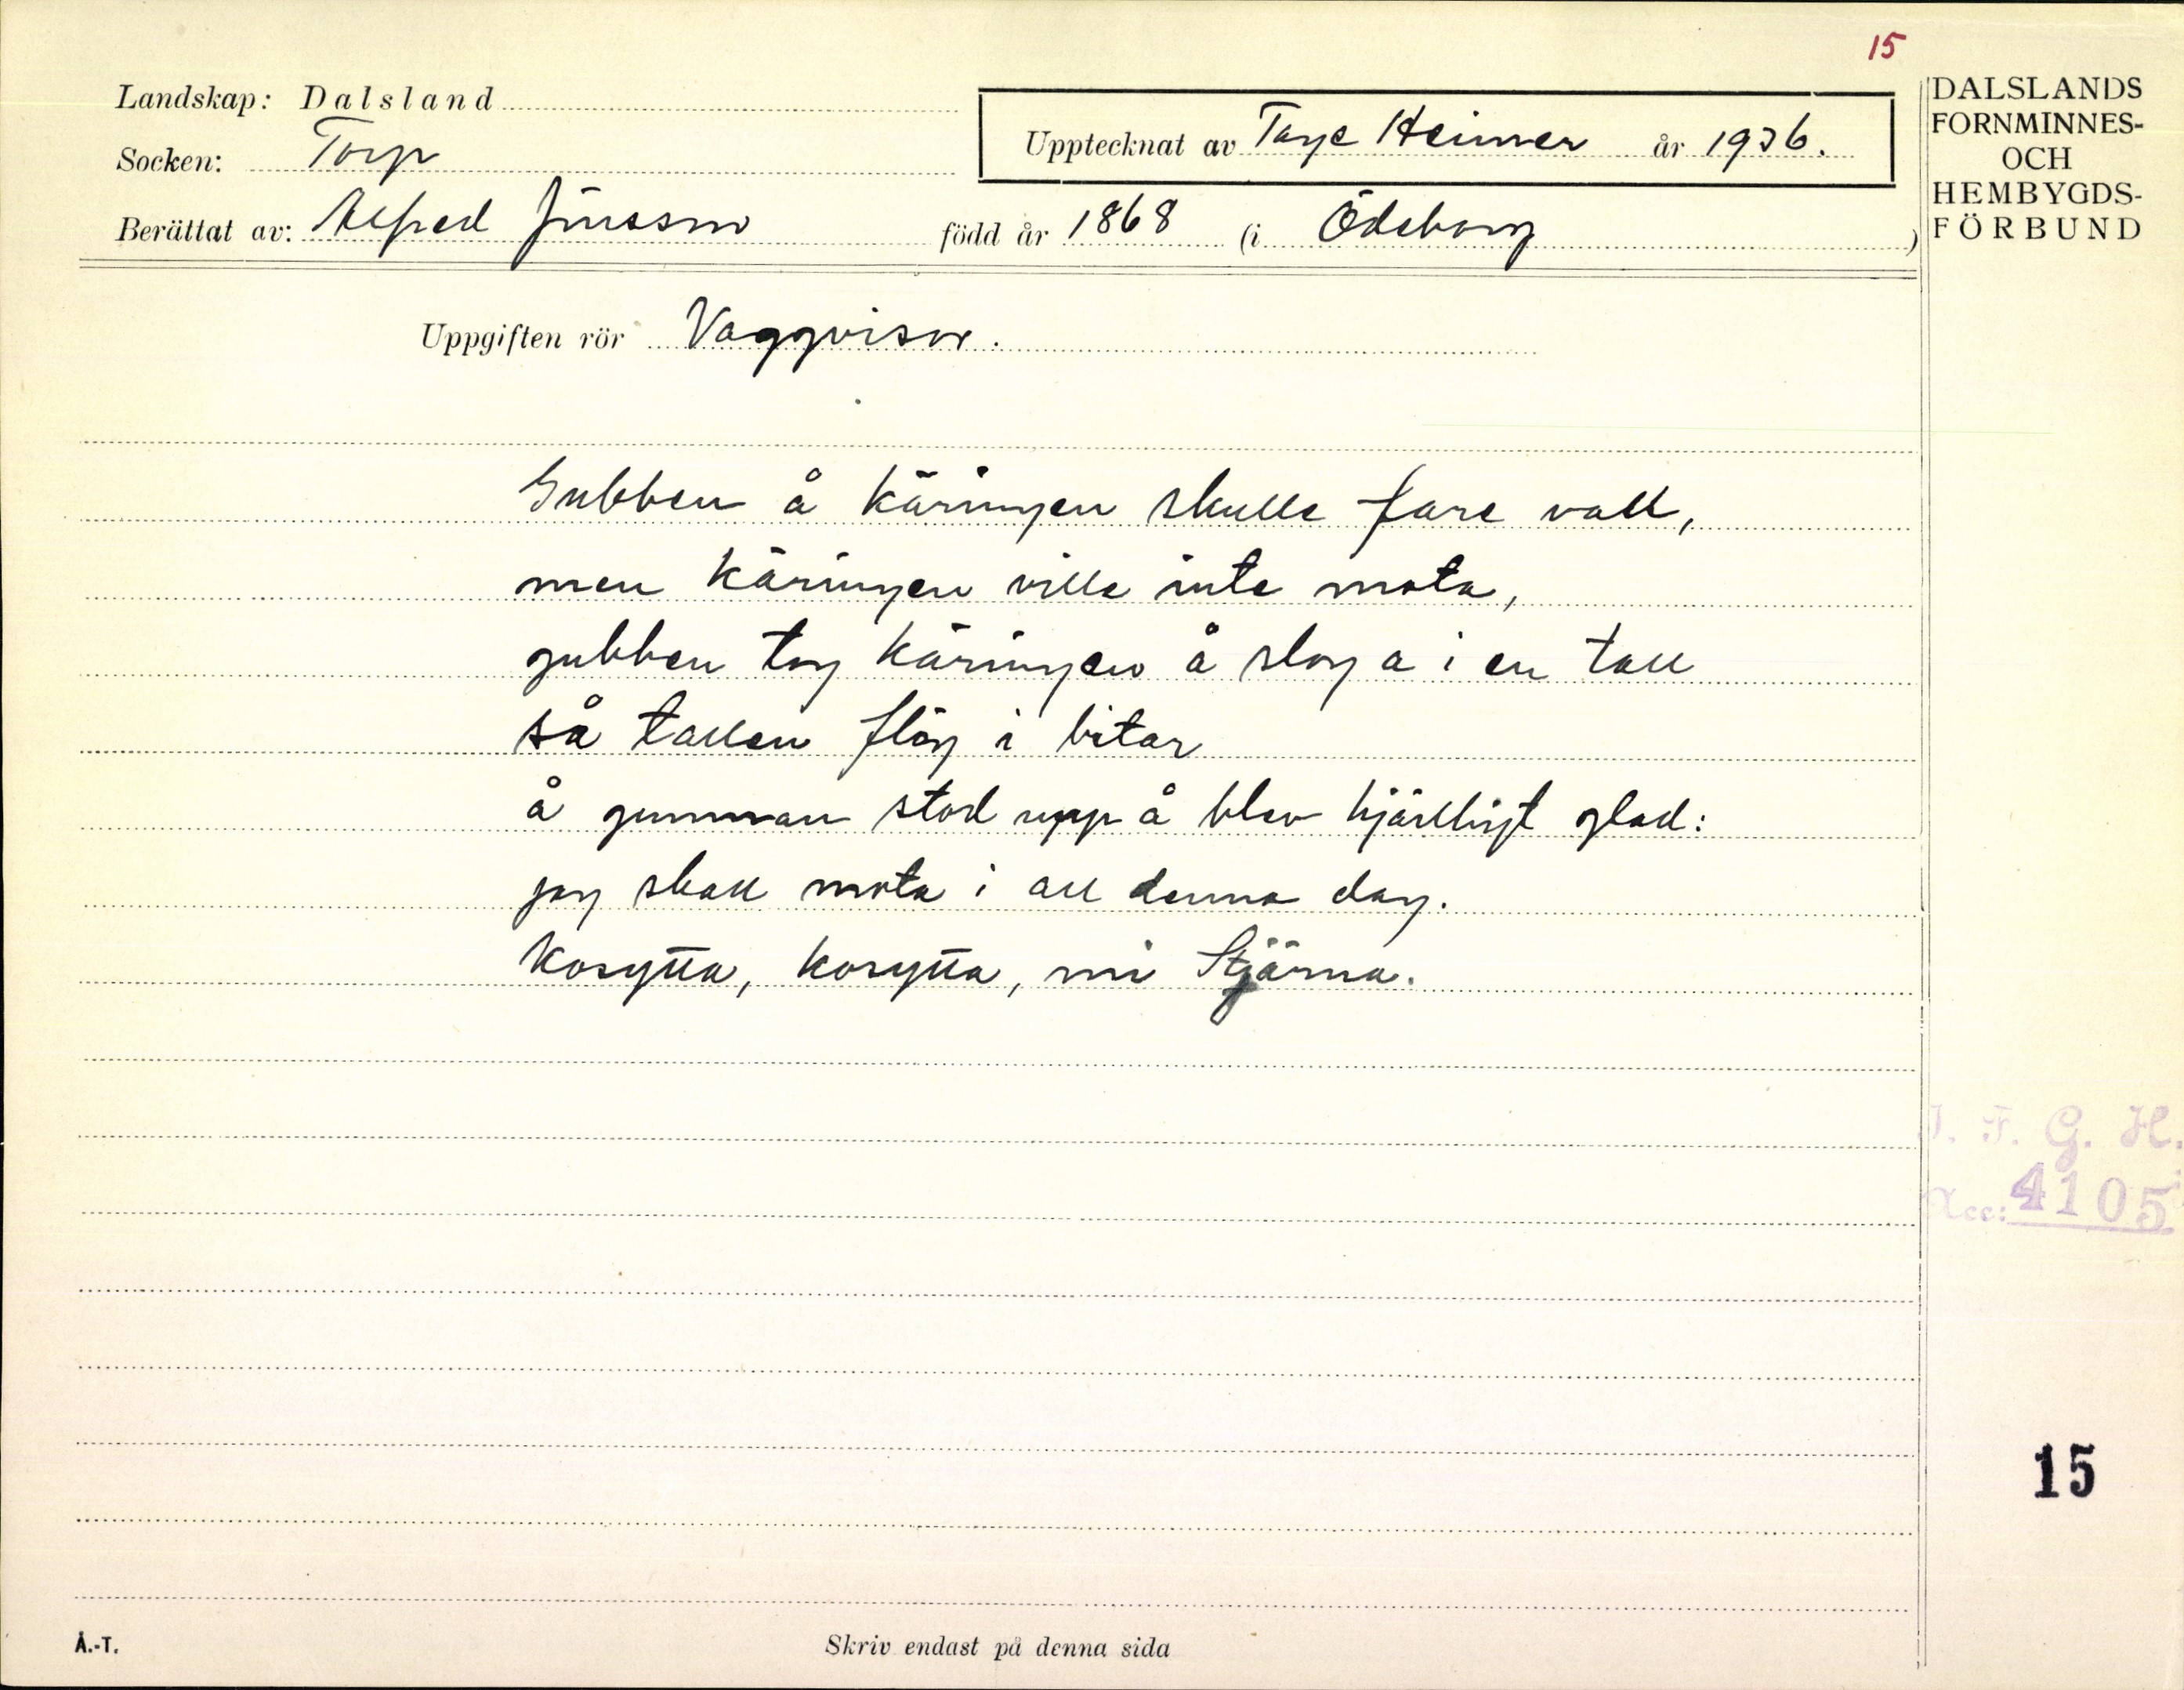 15
Landskap: Dalsland
Socken: Torp
Upptecknat av Tage Heimer år 1936.
Berättat av: Alfred Jönsson född år 1868 (i Ödeborg )
DALSLANDS
FORNMINNES-
OCH
HEMBYGDS-
FÖRBUND
Uppgiften rör Vaggvisor.
Gubben å käringen skulle fare vall,
men käringen ville inte mota,
gubben tog käringen å slog a i en tall
så tallen flög i bitar
å gumman stod upp å blev hjärtligt glad:
jag skall mota i all denna dag.
Kosytta, kosytta, mi Stjärna.
I. F. G. H.
Acc: 4105
15
Å.-T.
Skriv endast på denna sida